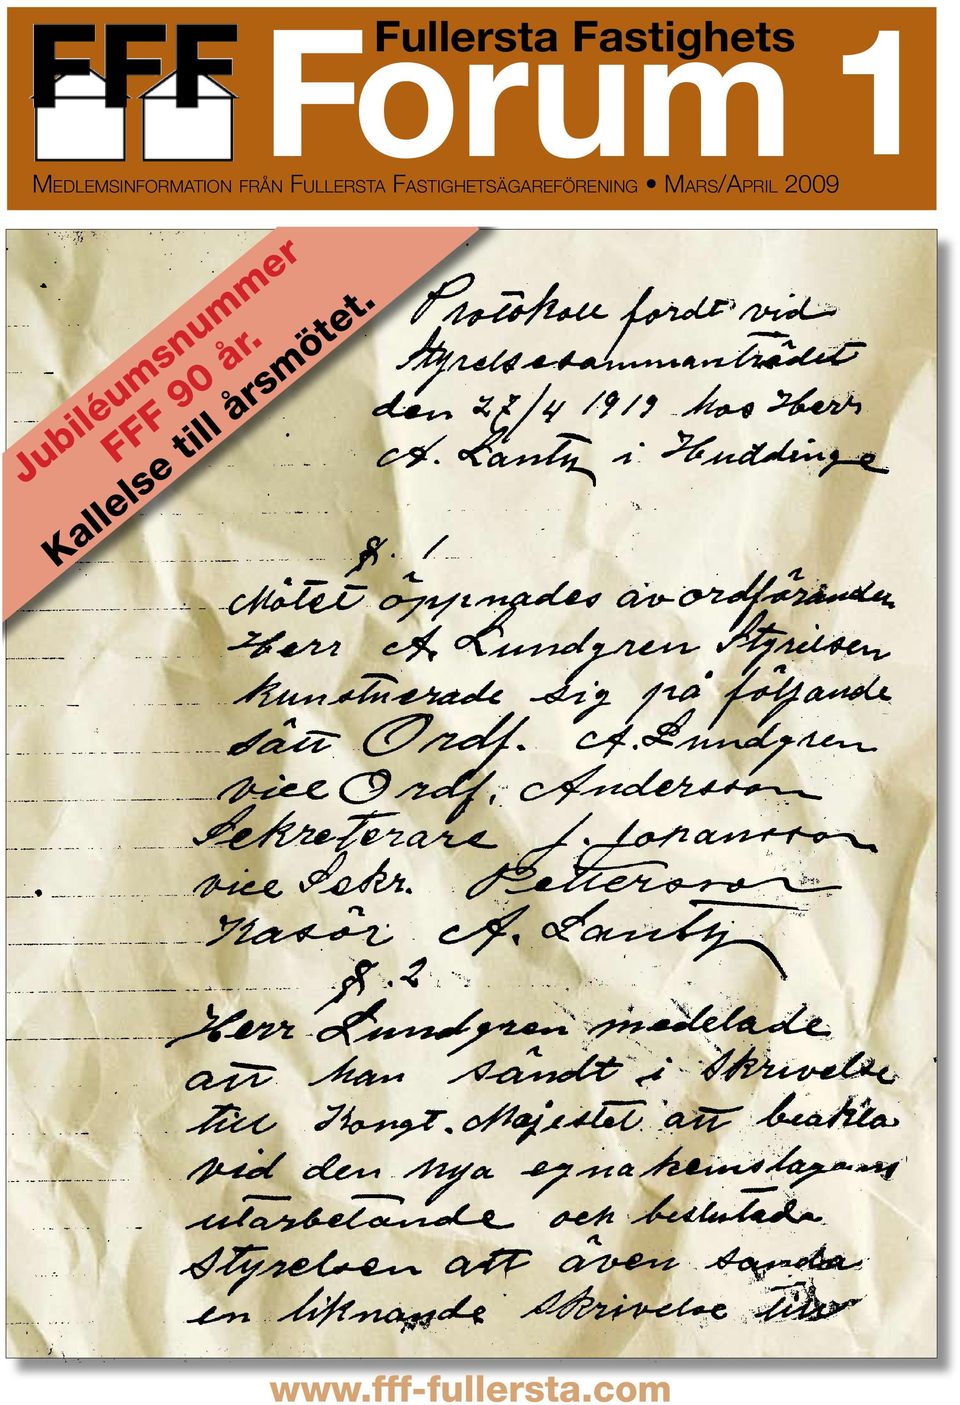 FFF
Fullersta Fastighets
Forum 1
MEDLEMSINFORMATION FRÅN FULLERSTA FASTIGHETSÄGAREFÖRENING • MARS/APRIL 2009
Jubiléumsnummer
FFF 90 år.
Kallelse till årsmötet.
Protokoll fordt vid
Styrelsesammanträdet
den 27/4 1919 hos Herr
A. Lanty i Huddinge
§. 1
Mötet öppnades av ordföranden
Herr A. Lundgren Styrelsen
kunstuerade sig på följande
sätt Ordf. A. Lundgren
vice Ordf. Andersson
Sekreterare J. Johansson
vice Sekr. Pettersson
Kasör A. Lanty
§. 2
Herr Lundgren medelade
att han sändt i skrivelse
till Kongt. Majestet att beakta
vid den nya egnahemslagens
utarbetande och beslutade
Styrelsen att även sända
en liknande skrivelse till
www.fff-fullersta.com